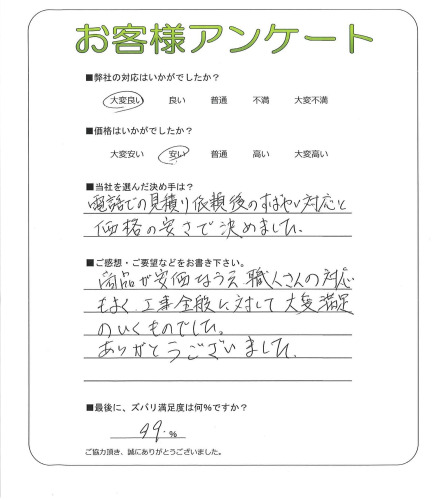 お客様アンケート
■弊社の対応はいかがでしたか?
大変良い 良い 普通 不満 大変不満
■価格はいかがでしたか?
大変安い 安い 普通 高い 大変高い
■当社を選んだ決め手は?
電話での見積り依頼後のすばやい対応と
価格の安さで決めました。
■ご感想・ご要望などをお書き下さい。
商品が安価なうえ職人さんの対応
もよく、工事全般に対して大変満足
のいくものでした。
ありがとうございました。
■最後に、ズバリ満足度は何%ですか?
99.%
ご協力頂き、誠にありがとうございました。